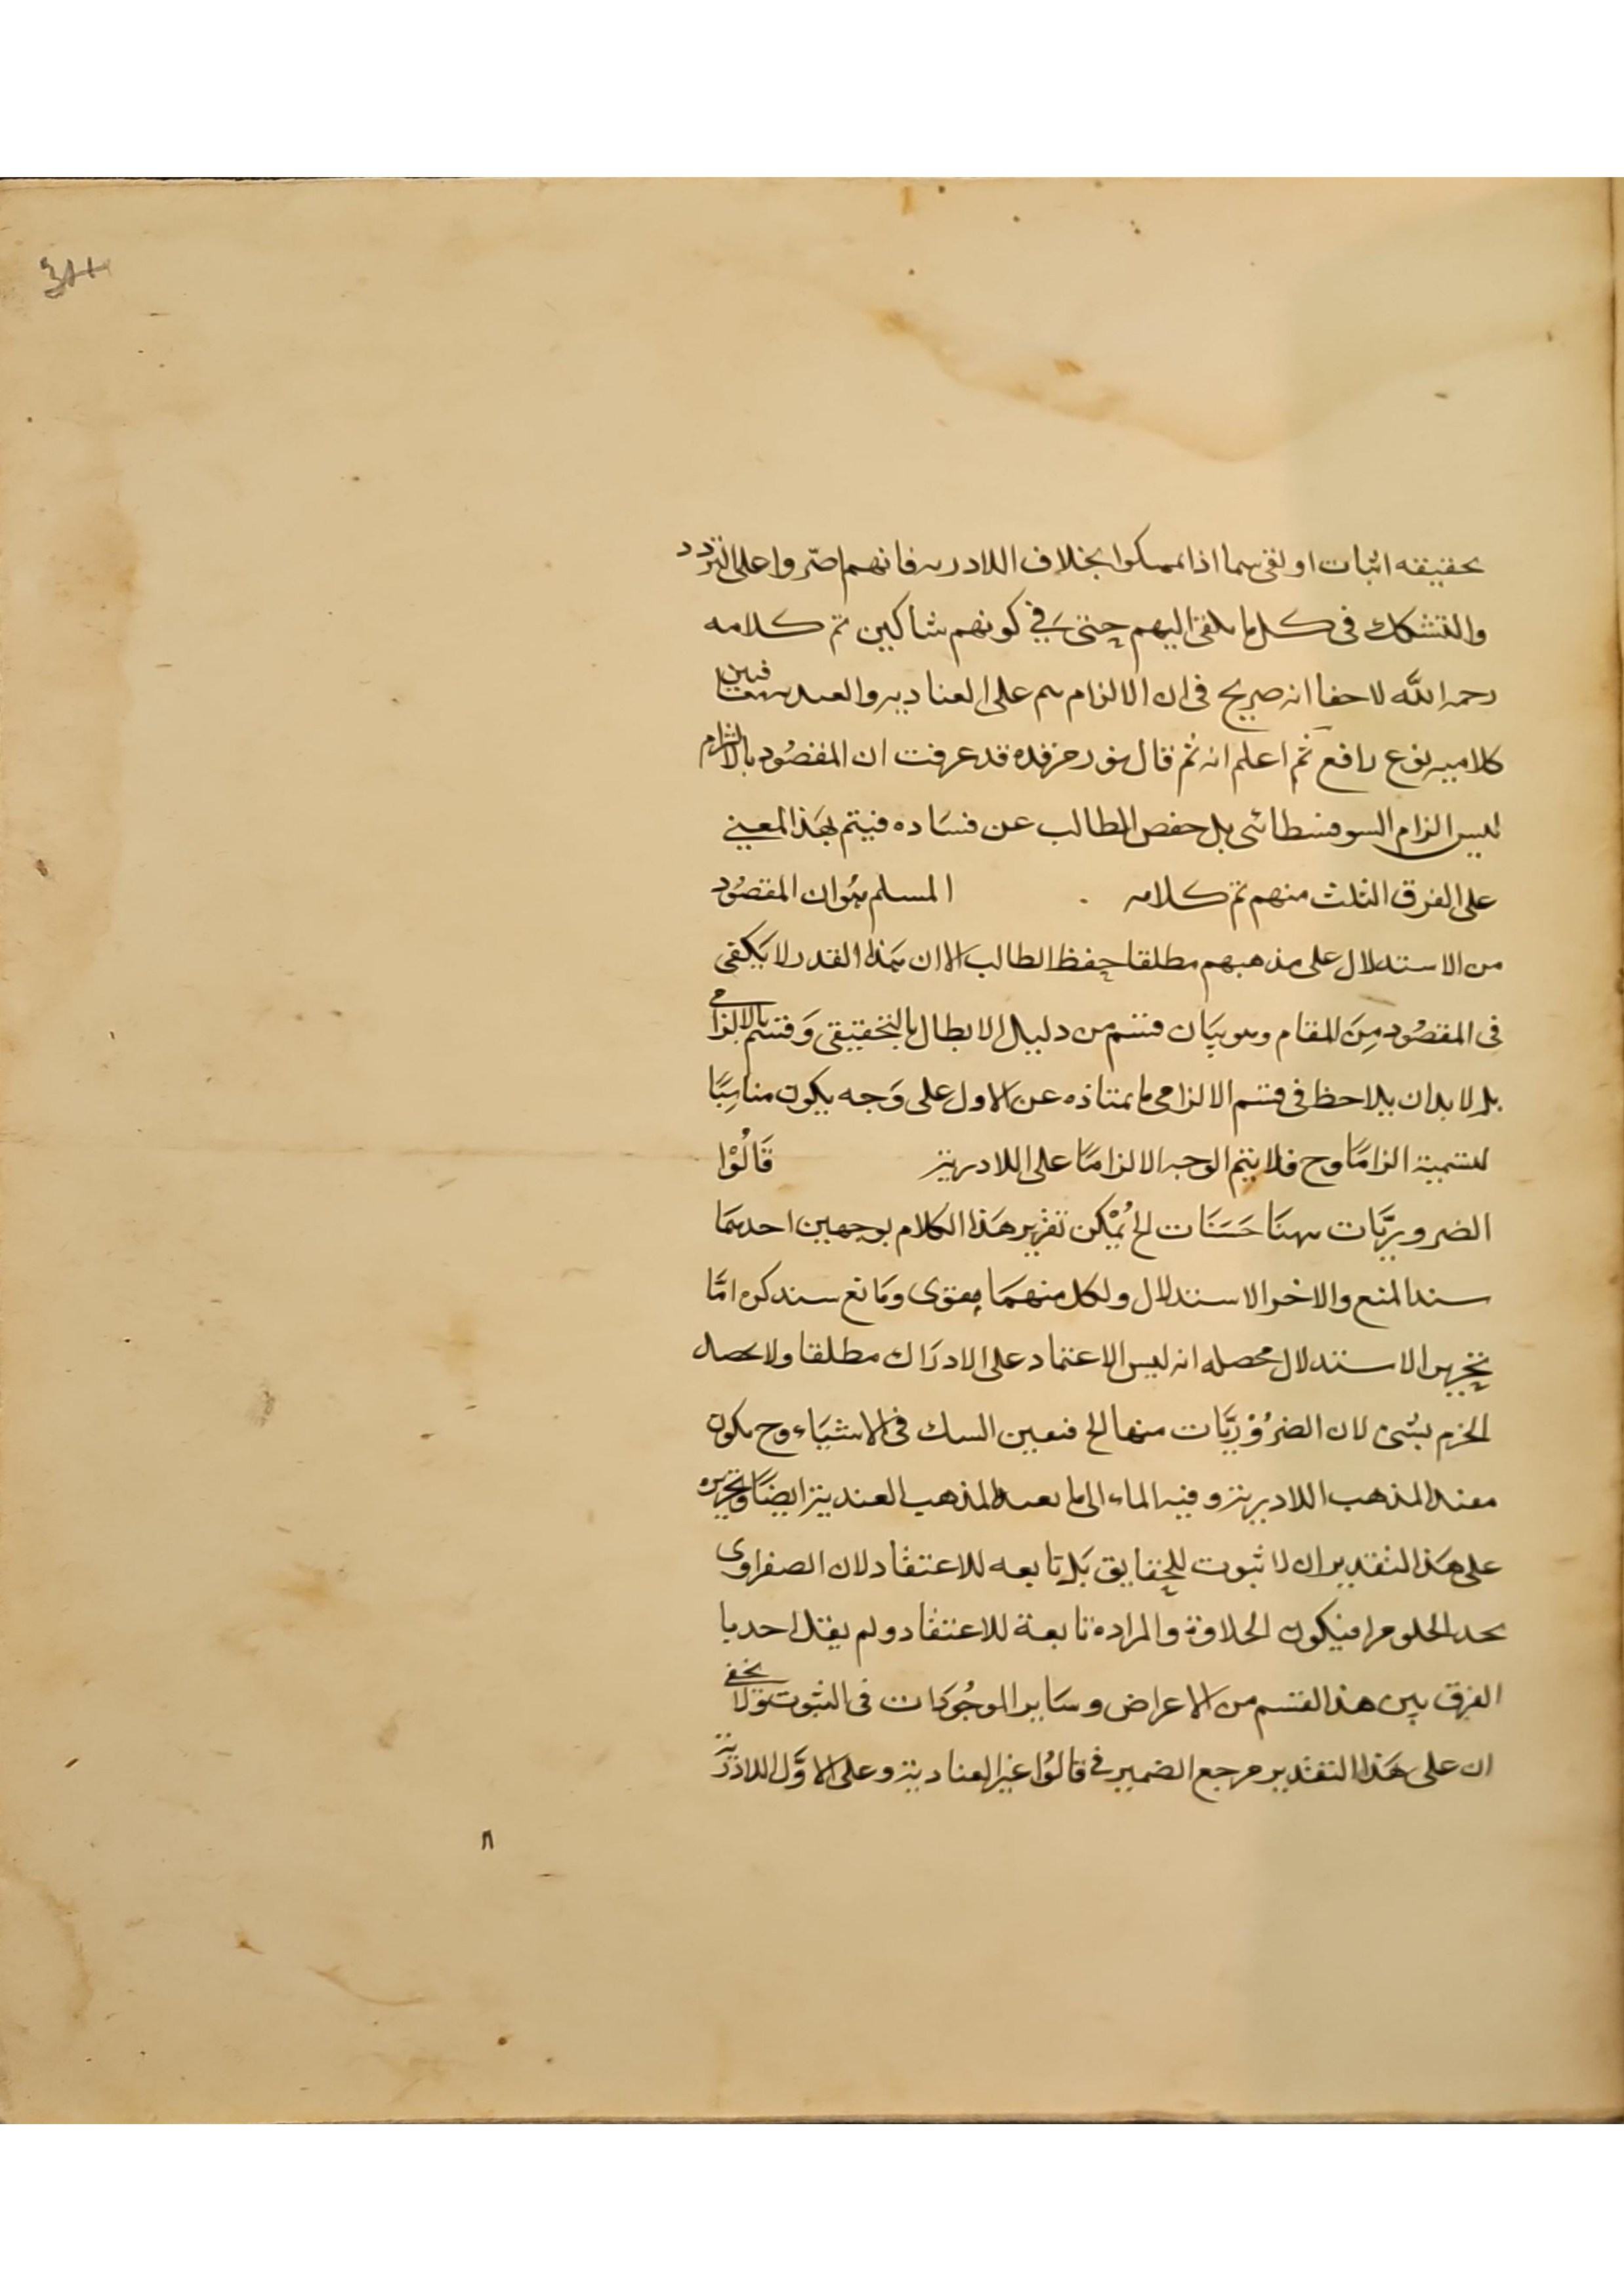 بحقيقه اثبات او نفى سما اذا تمسكوا بخلاف اللادريه فانهم اصّروا على التردد
والتشكك فى كل ما يلقى اليهم حتىَ فِي كونهم شاكين تم كلامه
رحمه اللّه لا خفا انه صريح فى ان الالزام يتم على العناديه والعنديه فبين
كلاميه نوع دافع ثم اعلم انه ثم قال نور مرقده قد عرفت ان المقصُود بالالزام
ليس الزام السوفسطائى بل حفص الطالب عن فسَاده فيتم بهَذا المعنى
على الفرق الثلث منهم تم كلامه المسلم هُو ان المقصُود
من الاستدلال على مذهبهم مطلقا حفظ الطالب الا ان بهَذا القدر لا يَكفى
فى المقصُود مِنَ المقام وهو بيَان قسم من دليل الابطال بالتحقيقى وَقسم بالالزامى
بل لا بد ان يلاحظ فى قسم الالزامى ما يمتاز به عن الاول على وَجه يكون مناسِبًا
لتسمية الزامًا وح فلا يتم الوجه الالزامًا على اللادرية قَالُوْا
الضروريَّات ههنَا حَسَنَات الخ يُمْكن تقرير هَذا الكلام بوجهين احدهمَا
سند المنع والاخر الاستدلال ولكل منهمَا مقوى ومَانع سنذكره امَّا
تحرير الاستدلال محصله انه ليس الاعتماد على الادرَاك مطلقا ولا يحصل
الجزم بشئ لان الضرُوْريَّات منها الخ فتعين الشك فى الاشيَاء وح يكون
مفيدا لمذهب اللادرية وفيه الماء الى ما يفيد المذهب العندية ايضًا وتحريره
على هَذا التقدير ان لا ثبوت للحقايق بَل تابعه للاعتقاد لان الصفراوى
يجد الحلو مرا فيكون الحلاوة والمراده تابعة للاعتقاد ولم يقل احد با
الفرق بين هذا القسم من الاعراض وسَاير الموجُودَات فى الثبوت ولا يخفى
ان على هَذا التقدير مرجع الضمير فى قالوُا غير العنادية وعلى الاوَّل اللادرَية
٨